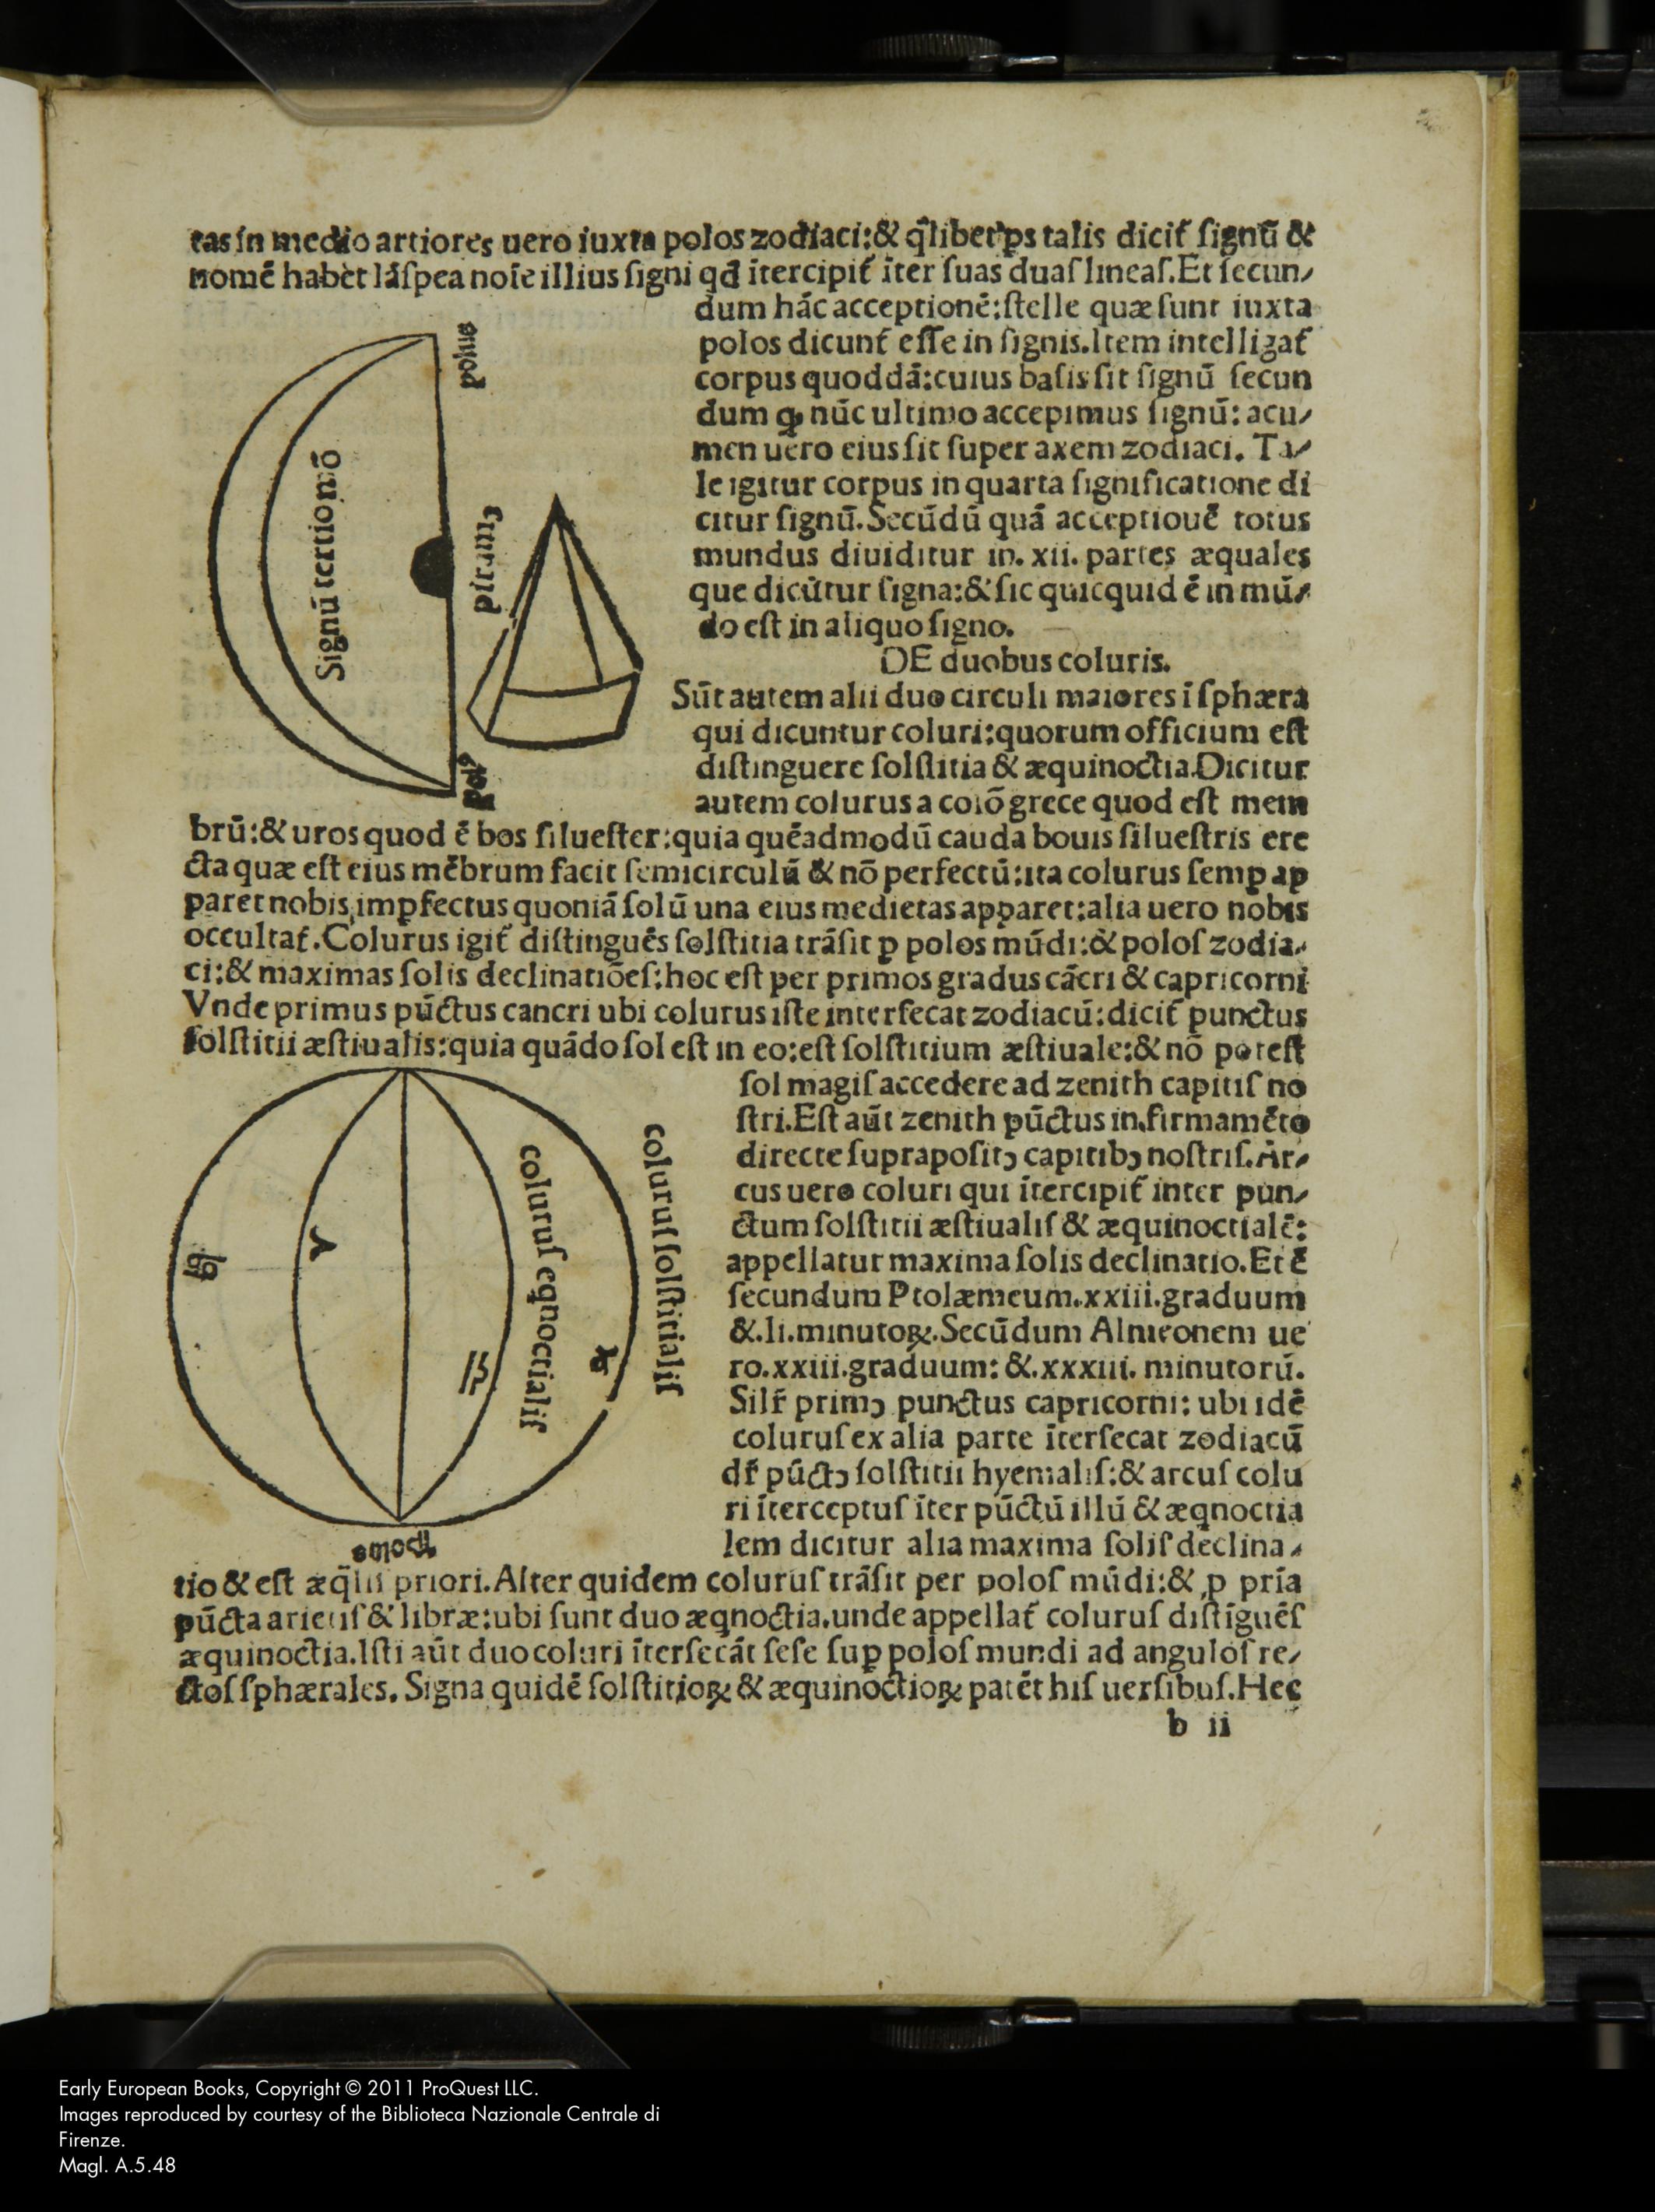 tas in medio artiores uero iuxta polos zodiaci:& q̃libet ps talis dicit̃ ſignũ &
nomẽ habet lãſpea noĩe illius ſigni qđ ĩtercipit̃ ĩter ſuas duaſ lineaſ.Et ſecun⸗
dum hãc acceptionẽ:ſtelle quæ ſunt iuxta
polos dicunt̃ eſſe in ſignis.Item intelligat̃
corpus quoddã:cuius baſis ſit ſignũ ſecun
dum ꝙ nũc ultimo accepimus ſignũ: acu⸗
men uero eius ſit ſuper axem zodiaci. Ta⸗
le igitur corpus in quarta ſignificatione di
citur ſignũ.Secũdũ quã acceptiouẽ totus
mundus diuiditur in. xii. partes æquales
que dicũtur ſigna:& ſic quicquid ẽ in mũ⸗
do eſt in aliquo ſigno.
polus
Signũ tertio mõ
piramꝫ
polꝰ
DE duobus coluris.
Sũt autem alii duo circuli maiores ĩ ſphæra
qui dicuntur coluri:quorum officium eſt
diſtinguere ſolſtitia & æquinoctia.Dicitur
autem colurus a colõ grece quod eſt mem
brũ:& uros quod ẽ bos ſilueſter:quia quẽadmodũ cauda bouis ſilueſtris ere
cta quæ eſt eius mẽbrum facit ſemicirculũ & nõ perfectũ:ita colurus ſemꝑ ap
paret nobis imꝑfectus quoniã ſolũ una eius medietas apparet:alia uero nobis
occultat̃.Colurus igit̃ diſtinguẽs ſolſtitia trãſit ꝑ polos mũdi:& poloſ zodia⸗
ci:& maximas ſolis declinatiõeſ:hoc eſt per primos gradus cãcri & capricorni
Vnde primus pũctus cancri ubi colurus iſte interſecat zodiacũ:dicit̃ punctus
ſolſtitii æſtiualis:quia quãdo ſol eſt in eo:eſt ſolſtitium æſtiuale:& nõ poteſt
ſol magiſ accedere ad zenith capitiſ no
ſtri.Eſt aũt zenith pũctus in firmamẽto
directe ſuprapoſitꝰ capitibꝰ noſtriſ.Ar⸗
cus uero coluri qui ĩtercipit̃ inter pun⸗
ctum ſolſtitii æſtiualiſ & æquinoctialẽ:
appellatur maxima ſolis declinatio.Et ẽ
ſecundum Ptolæmeum.xxiii.graduum
&.li.minutoꝝ.Secũdum Almeonem ue
ro.xxiii.graduum: &.xxxiii. minutorũ.
Silr̃ primꝰ punctus capricorni: ubi idẽ
coluruſ ex alia parte ĩterſecat zodiacũ
dr̃ pũctꝰ ſolſtitii hyemaliſ:& arcuſ colu
ri ĩterceptuſ ĩter pũctũ illũ & æqnoctia
lem dicitur alia maxima ſoliſ declina⸗
♋
♈
♎
♑
coluruſ eqnoctialiſ
coluruſ ſolſtitialiſ
polus
tio & eſt æq̃liſ priori.Alter quidem coluruſ trãſit per poloſ mũdi:& ꝓ pría
pũcta arietiſ & libræ:ubi ſunt duo æqnoctia.unde appellat̃ coluruſ diſtĩguẽſ
æquinoctia.Iſti aũt duo coluri ĩterſecãt ſeſe ſuꝑ poloſ mundi ad anguloſ re⸗
ctoſ ſphærales. Signa quidẽ ſolſtitioꝝ & æquinoctioꝝ patẽt hiſ uerſibuſ.Hec
b ii
Early European Books, Copyright © 2011 ProQuest LLC.
Images reproduced by courtesy of the Biblioteca Nazionale Centrale di
Firenze.
Magl. A.5.48